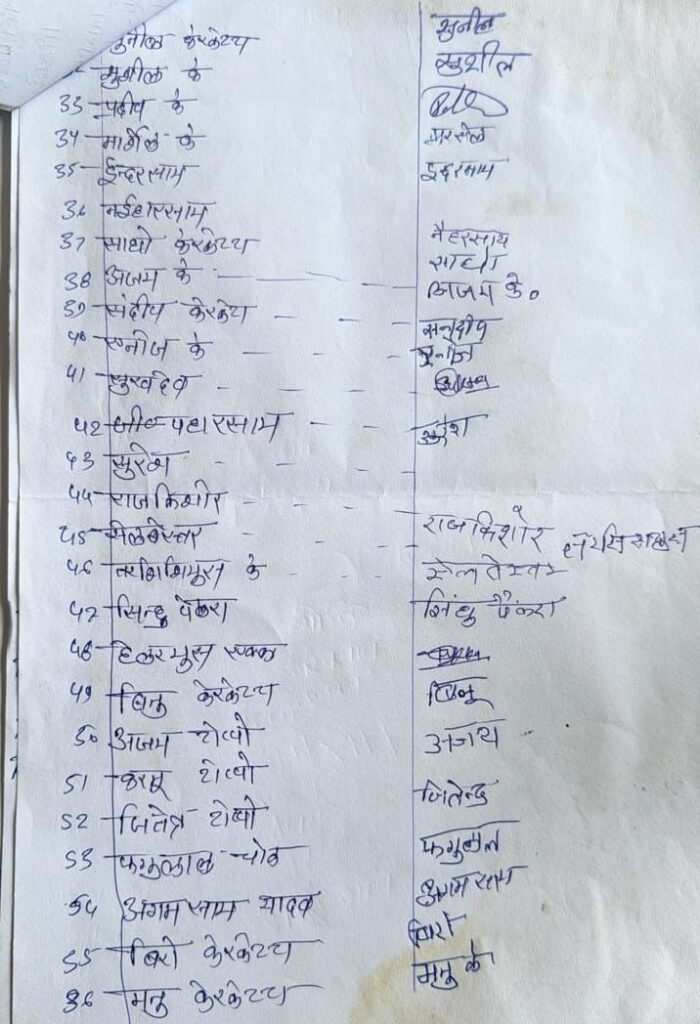 सुनील केरकेट्टा सुनील
सुशील के सुशील
33 प्रदीप के
34 मार्शेल के मारसेल
35 ईन्दरसाय ईंदरसाय
36 नईहारसाय नैहरसाय
37 साधो केरकेट्टा साधो
38 अजय के अजय के०
39 संदीप केरकेट्टा सन्दीप
40 एनोज के एनोज
41 सुखदेव
42
43 सुरेश सुरेश
44 राजकिशोर राजकिशोर
45 सेलबेस्तर सेलतेस्तर
46 के
47 सिन्धु पैकरा सिंधु पैंकरा
48
49 बिनु केरकेट्टा बिनू
50 अजय टोप्पो अजय
51 टोप्पो
52 जितेन्द्र टोप्पो जितेन्द्र
53 फगुलाल फगुलाल
54 अगमसाय यादव अगमसाय
55 बिरो केरकेट्टा बिरो
56 मनु केरकेट्टा मनु के